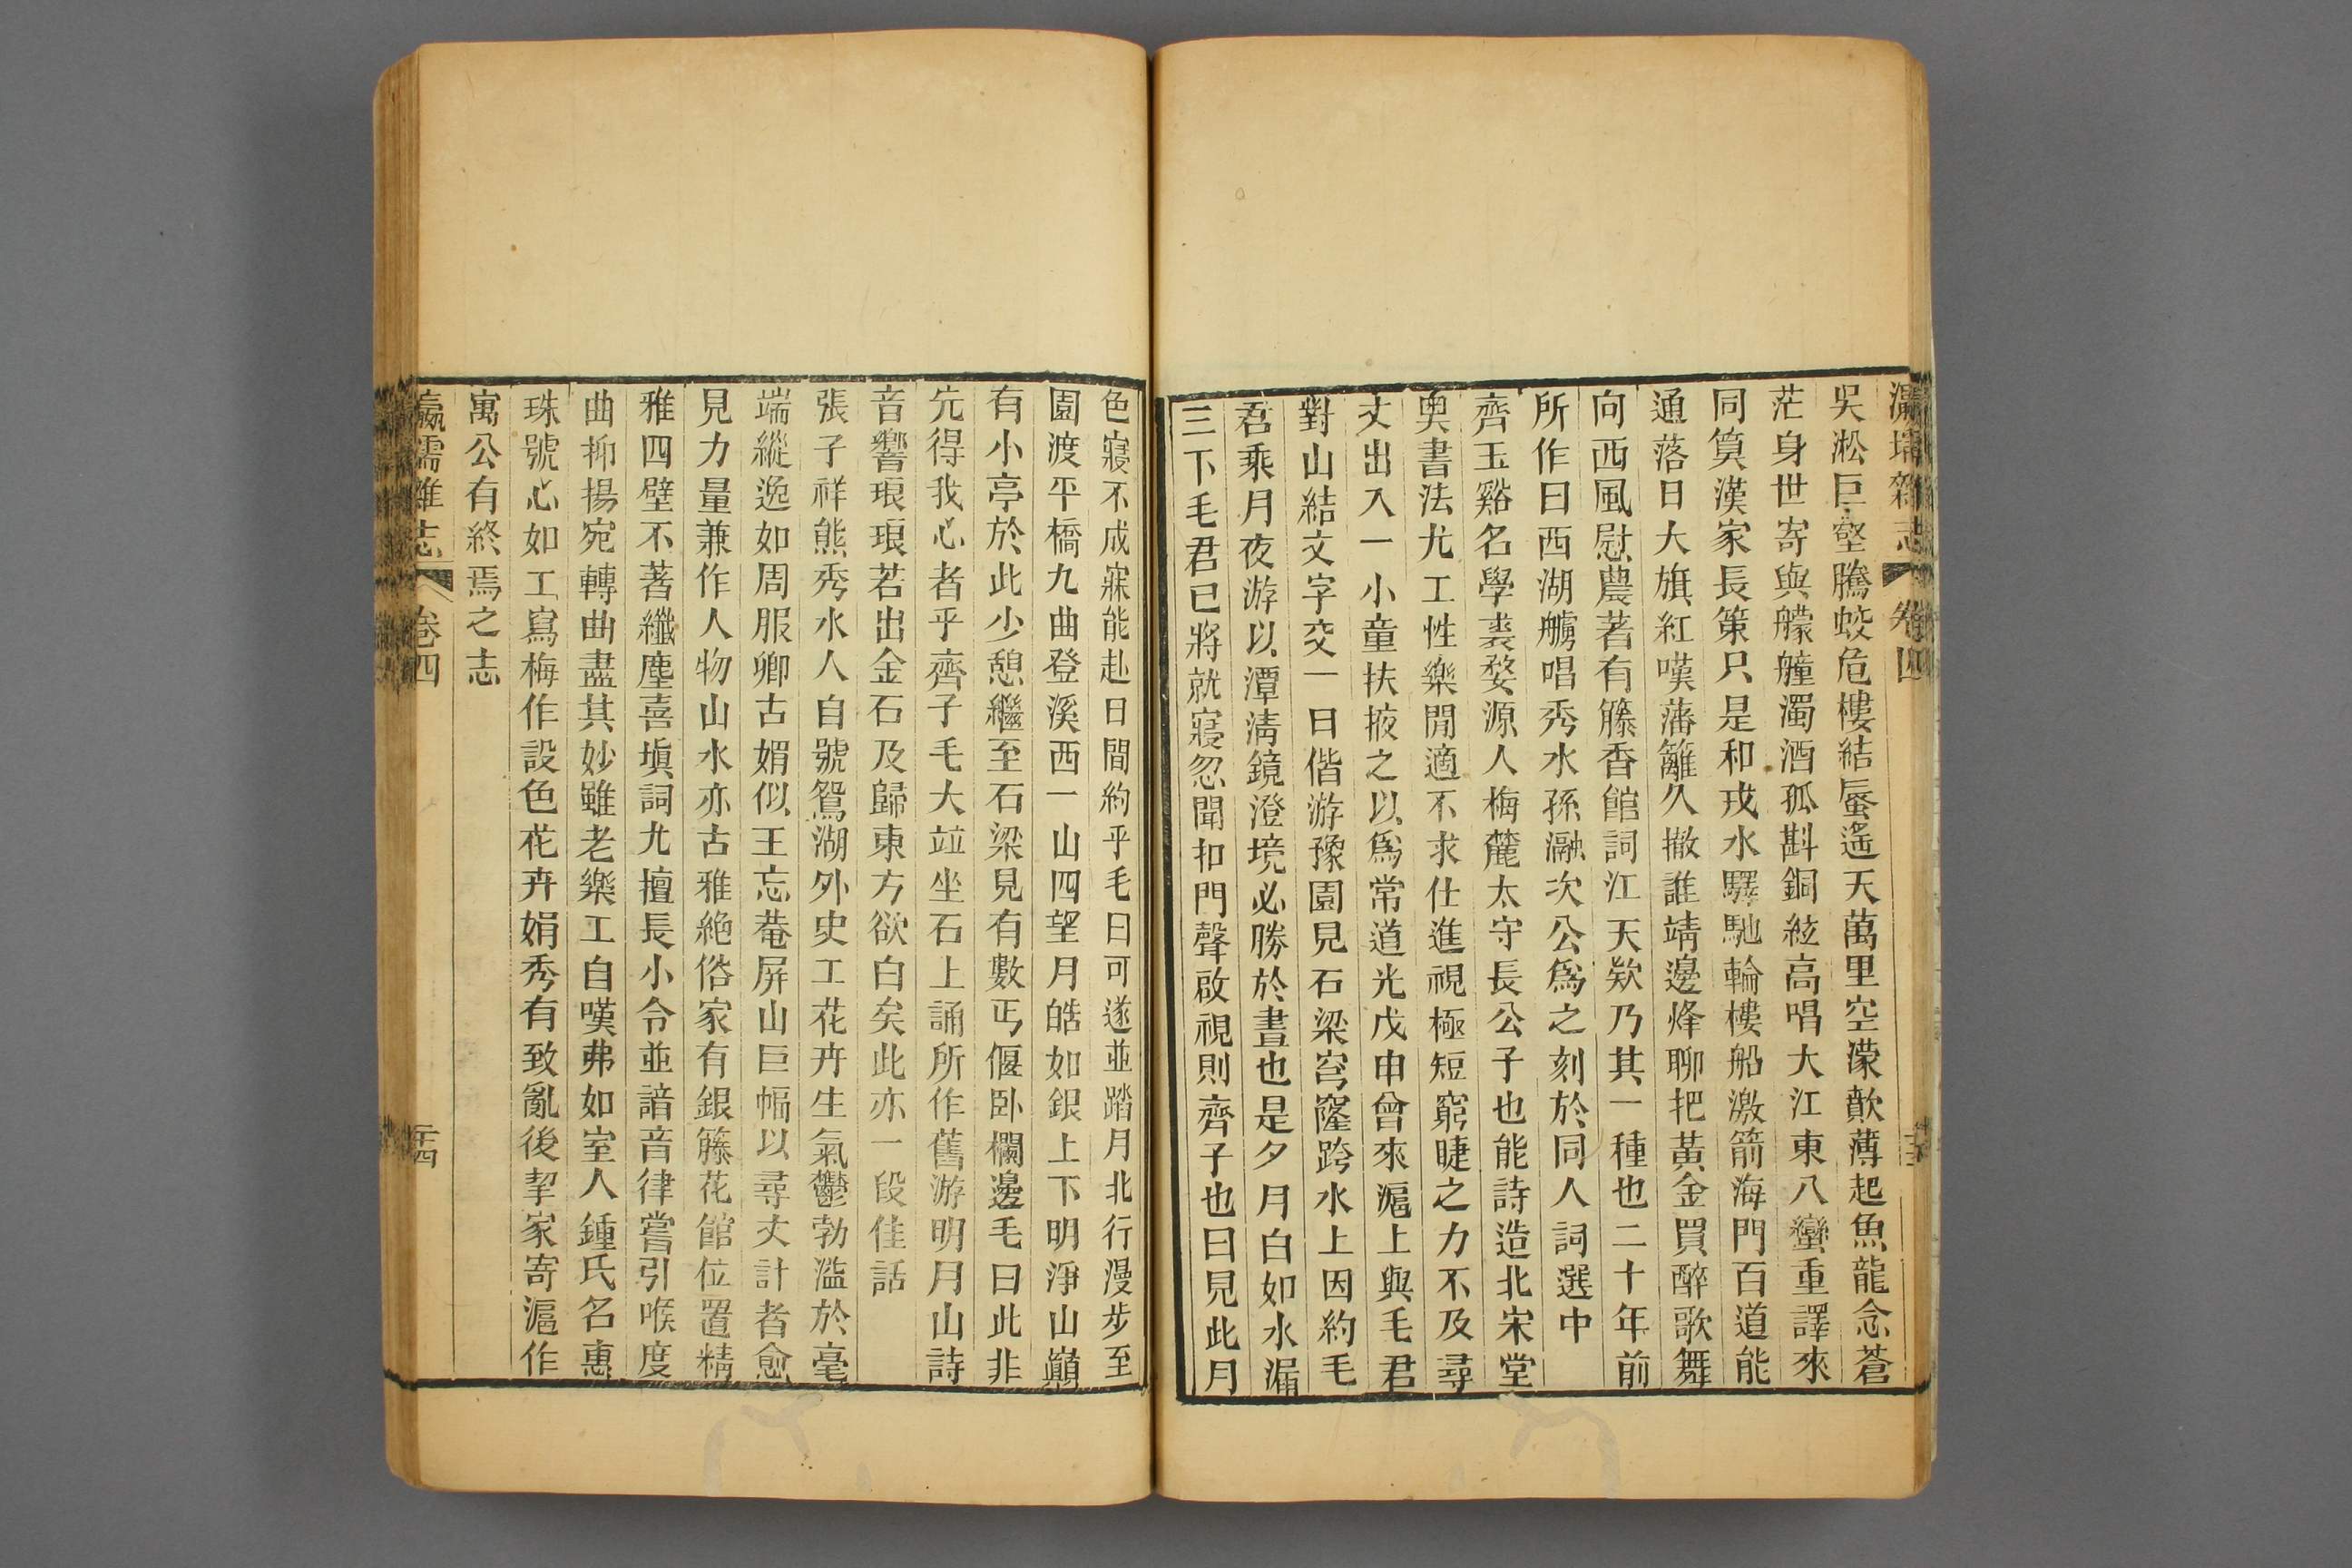 瀛壖雜志 卷四
吳淞巨壑騰蛟危樓結蜃遙天萬里空濛歕薄起魚龍念蒼
茫身世寄與艨艟濁酒孤斟銅絃高唱大江東八蠻重譯來
同筭漢家長策只是和戎水驛馳輪樓船激箭海門百道能
通落日大旗紅嘆藩籬久撤誰靖邊烽聊把黃金買醉歌舞
向西風慰農著有籐香館詞江天欵乃其一種也二十年前
所作曰西湖艣唱秀水孫瀜次公爲之刻於同人詞選中
齊玉谿名學裘婺源人梅麓太守長公子也能詩造北宋堂
奥書法尤工性樂閒適不求仕進視極短窮睫之力不及尋
丈出入一小童扶掖之以爲常道光戊申曾來滬上與毛君
對山結文字交一日偕游豫園見石梁穹窿跨水上因約毛
君乘月夜游以潭淸鏡澄境必勝於晝也是夕月白如水漏
三下毛君已將就寢忽聞扣門聲啟視則齊子也曰見此月
色寢不成寐能赴日間約乎毛曰可遂並踏月北行漫步至
園渡平橋九曲登溪西一山四望月皓如銀上下明淨山巓
有小亭於此少憩繼至石梁見有數丐偃卧欄邊毛曰此非
先得我心者乎齊子毛大竝坐石上誦所作舊游明月山詩
音響琅琅若出金石及歸東方欲白矣此亦一段佳話
張子祥熊秀水人自號鴛湖外史工花卉生氣鬱勃溢於毫
端縱逸如周服卿古媚似王忘菴屏山巨幅以尋丈計者愈
見力量兼作人物山水亦古雅絶俗家有銀籐花館位置精
雅四壁不著纖塵喜塡詞尤擅長小令並諳音律嘗引喉度
曲抑揚宛轉曲盡其妙雖老樂工自嘆弗如室人鍾氏名惠
珠號心如工寫梅作設色花卉娟秀有致亂後挈家寄滬作
寓公有終焉之志
瀛壖雜志 卷四 二十四